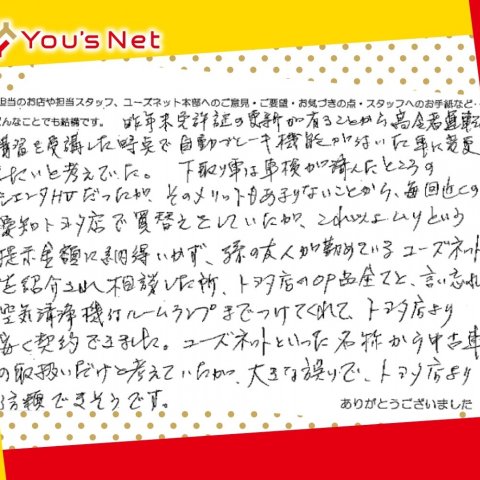 You's Net
担当のお店や担当スタッフ、ユーズネット本部へのご意見・ご要望・お気づきの点・スタッフへのお手紙など…
どんなことでも結構です。 昨年末免許証の更新が有ることから高令者運転
講習を受講した時点で自動ブレーキ機能が付いた車に変更
したいと考えていた。 下取り車は車検が済んだところの
シエンタHVだったが、そのメリットもあまりないことから、毎回近くの
愛知トヨタ店で買替えをしていたが、これ以上ムリという
提示金額に納得いかず、孫の友人が勤めているユーズネット
を紹介され相談した所、トヨタ店のOP品全てと、言い忘れ
空気清浄機やルームランプまでつけてくれて、トヨタ店より
安く契約できました。ユーズネットといった名称から中古車
の取扱いだけと考えていたが、大きな誤りで、トヨタ店より
信頼できそうです。
ありがとうございました